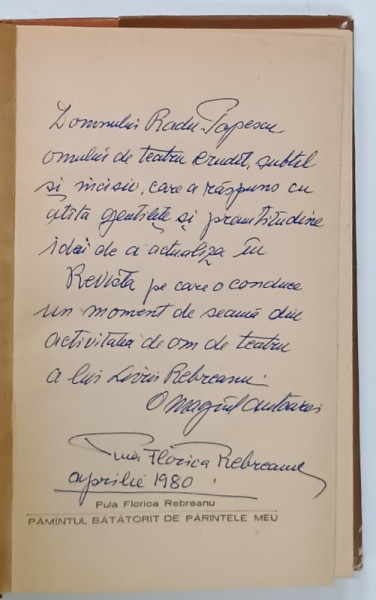 Domnului Radu Popescu
omului de teatru erudit, subtil
și incisiv, care a răspuns cu
atîta gentilețe și promtitudine
idei de a actualiza în
Revista pe care o conduce
un moment de seamă din
activitatea de om de teatru
a lui Liviu Rebreanu.
Omagiul autoarei
Puia Florica Rebreanu
aprilie 1980
Puia Florica Rebreanu
PĂMÎNTUL BĂTĂTORIT DE PĂRINTELE MEU